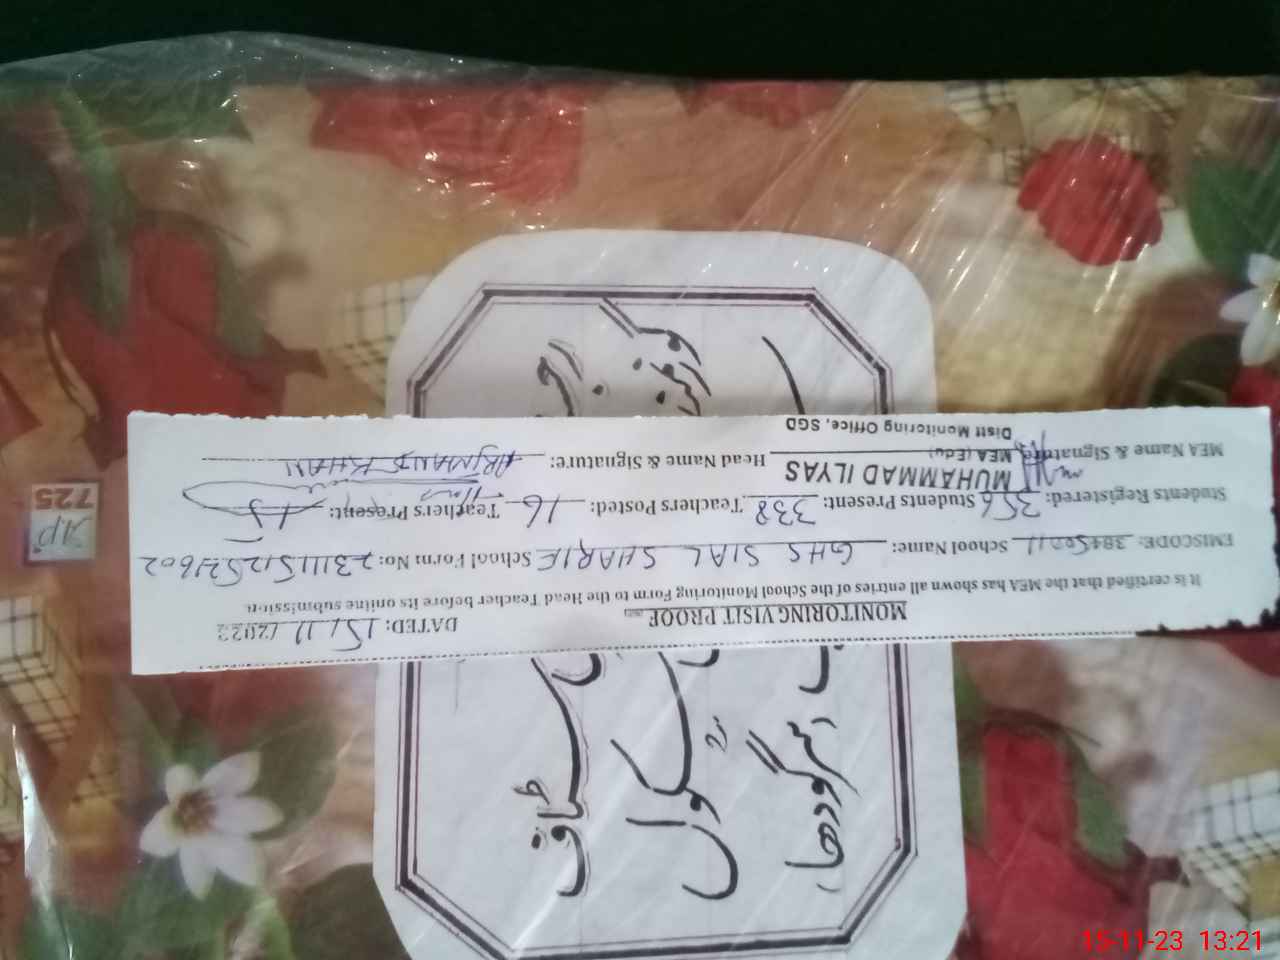 MONITORING VISIT PROOF
DATED: 15/11/2023
It is certified that the MEA has shown all entries of the School Monitoring Form to the Head Teacher before its online submission.
EMISCODE: School Name: GHS SIAL SHARIF School Form No:
Students Registered: 356 Students Present: 338 Teachers Posted: 16 Teachers Present: 15
MUHAMMAD ILYAS
MEA Name & Signature: MEA (Edu) Head Name & Signature: ARJMAND KHAN
Distt Monitoring Office, SGD
سٹاف
سکول
سرگودھا
725
15-11-23 13:21